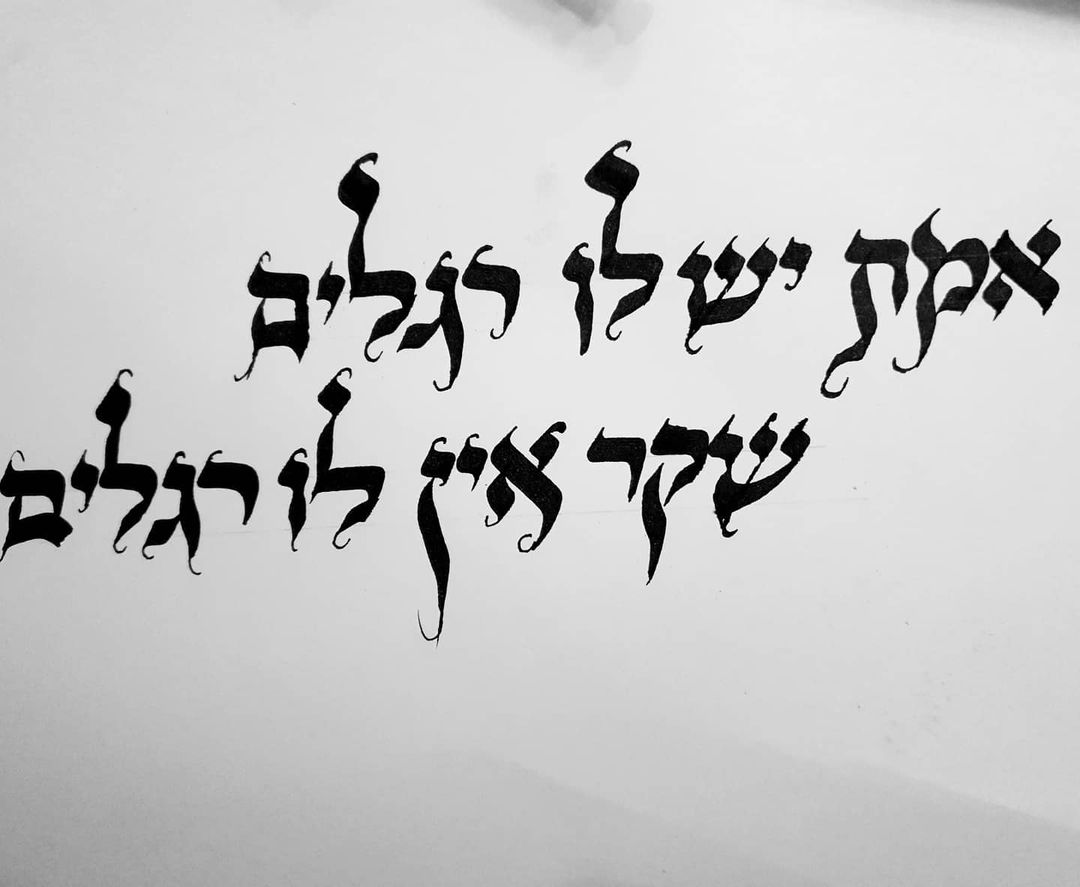 אמת יש לו רגלים
שקר אין לו רגלים